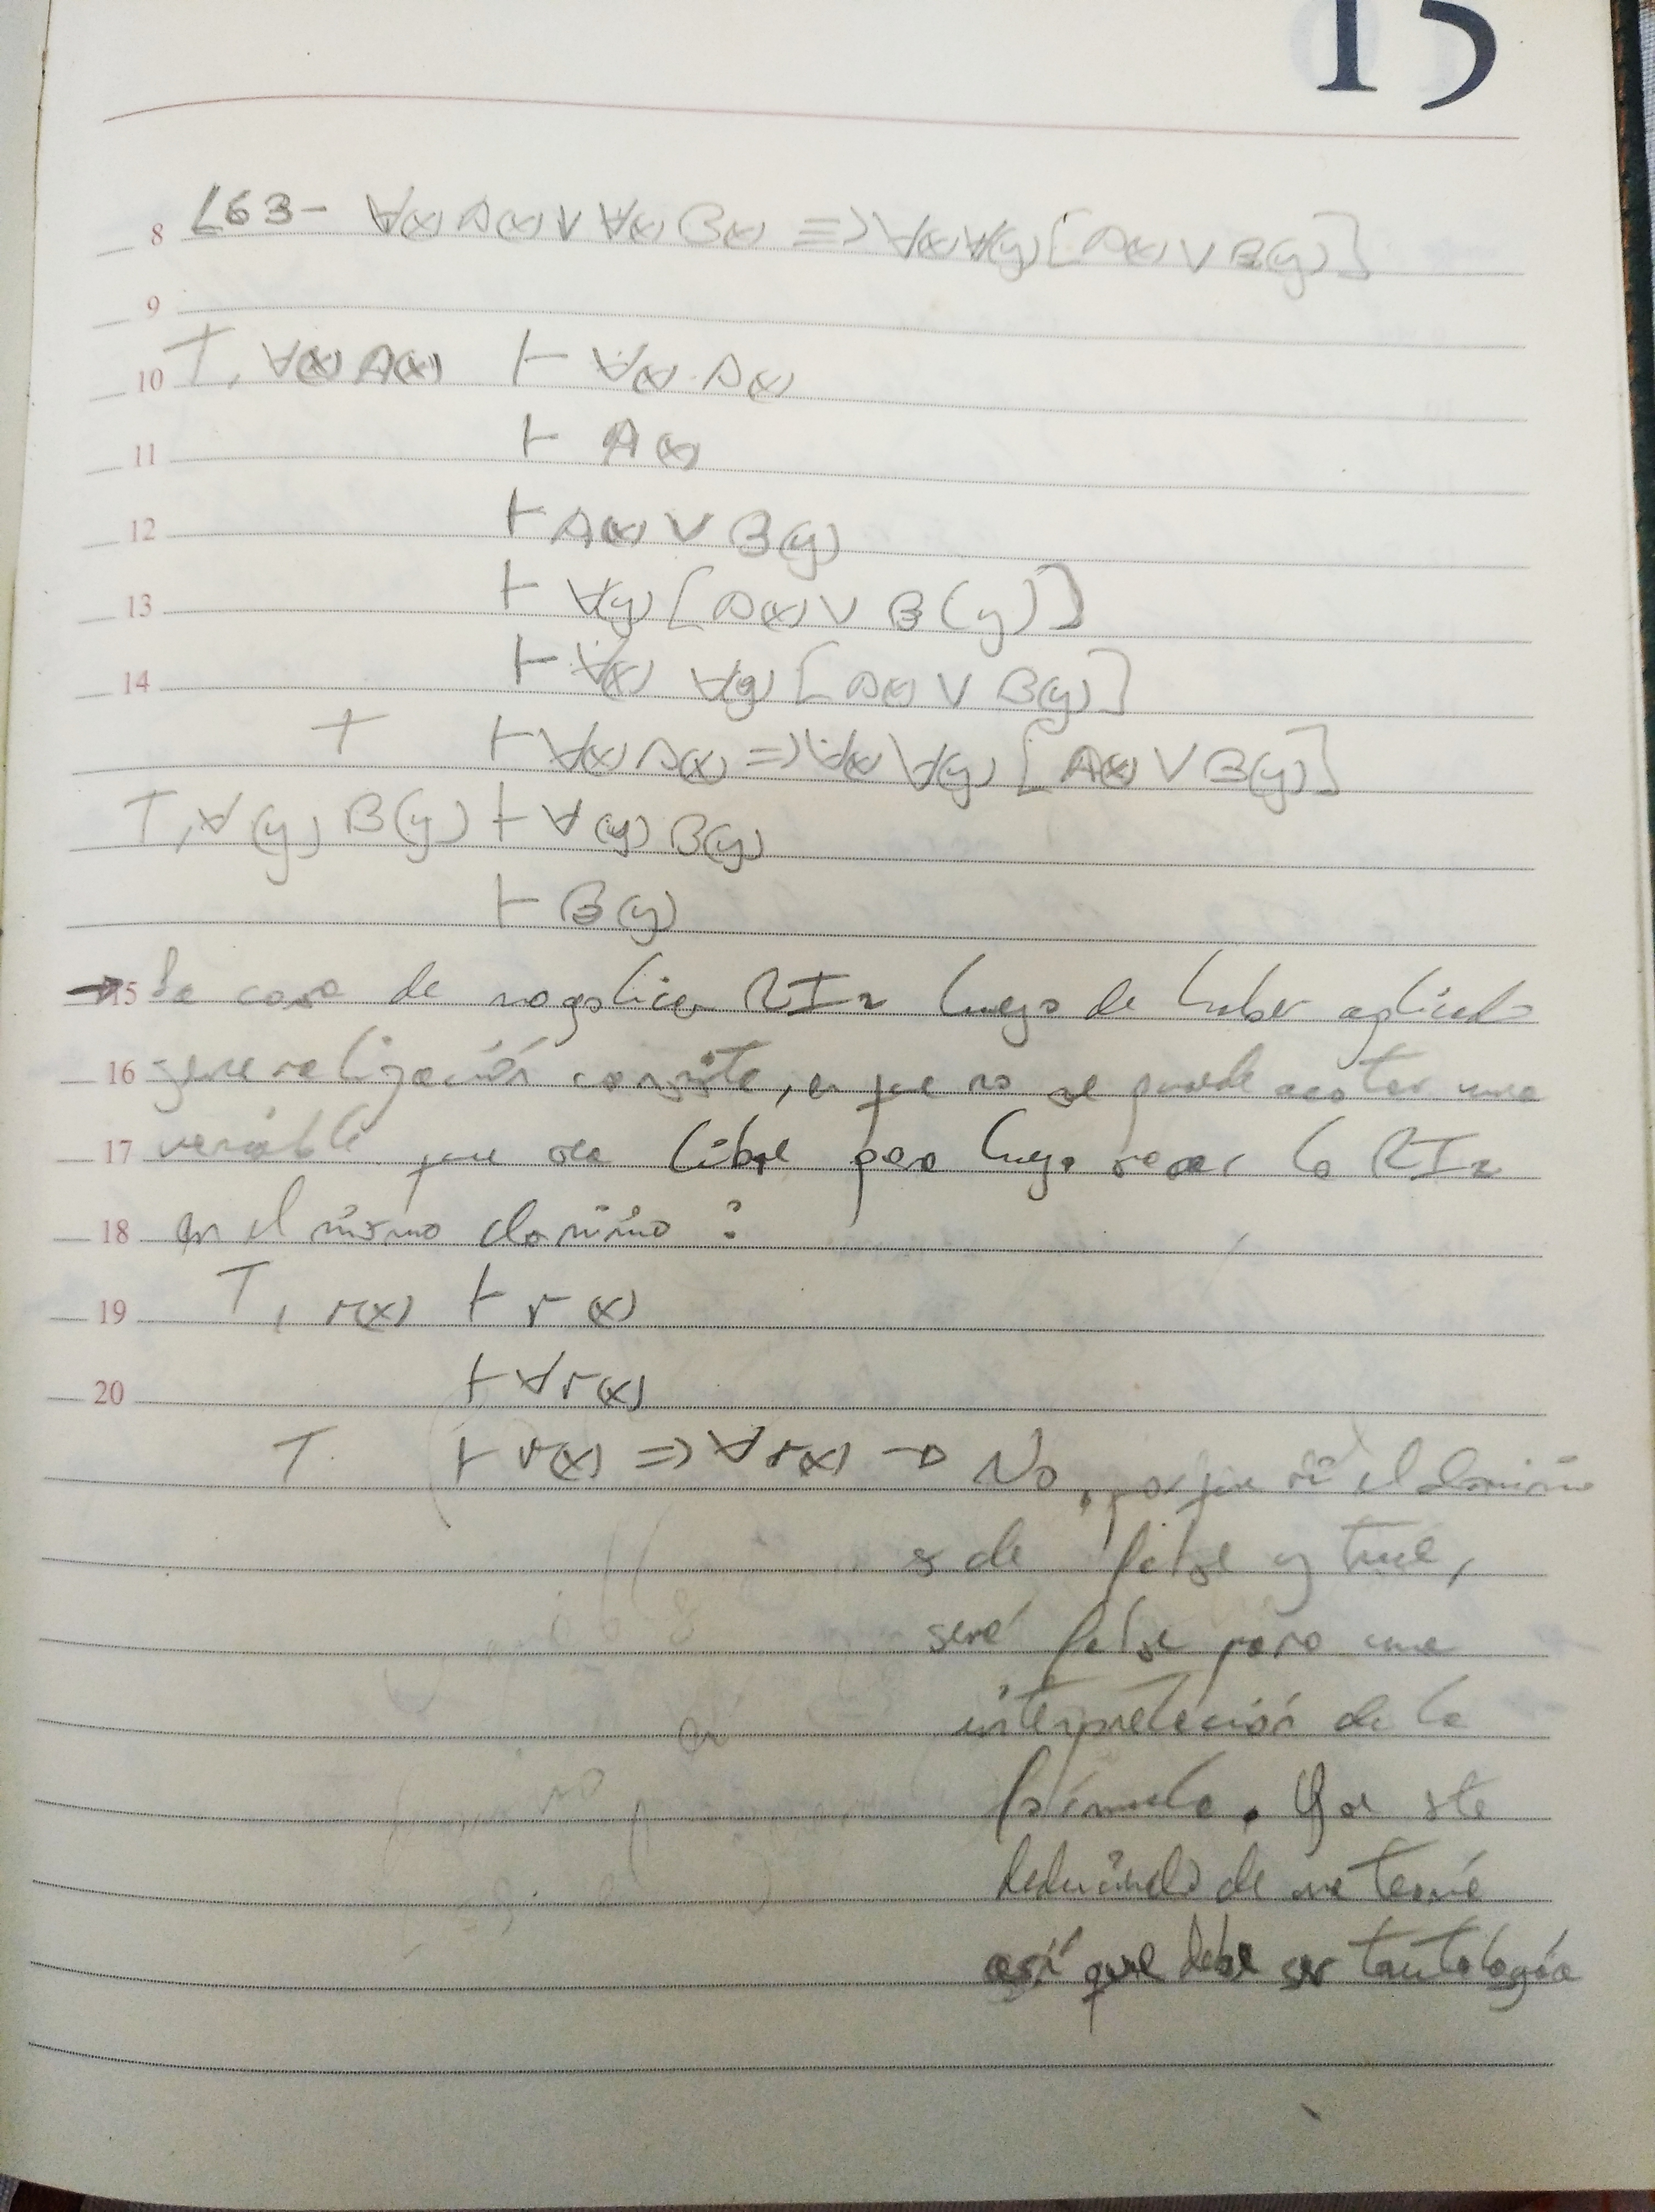 15
8 L63- ∀(x) A(x) ∨ ∀(x) B(x) => ∀(x) ∀(y) [A(x) ∨ B(y)]
9
10 T, ∀(x) A(x) ⊢ ∀(x) A(x)
11 ⊢ A(x)
12 ⊢ A(x) ∨ B(y)
13 ⊢ ∀(y) [A(x) ∨ B(y)]
14 ⊢ ∀(x) ∀(y) [A(x) ∨ B(y)]
T ⊢ ∀(x) A(x) => ∀(x) ∀(y) [A(x) ∨ B(y)]
T, ∀(y) B(y) ⊢ ∀(y) B(y)
⊢ B(y)
→ 15 La cosa de no aplicar RI2 luego de haber aplicado
16 generalización consiste, en que no se puede acotar una
17 variable que sea libre para luego sacar la RI2
18 en el mismo dominio :
19 T, r(x) ⊢ r(x)
20 ⊢ ∀r(x)
T. ⊢ r(x) => ∀r(x) → No, porque si el dominio
es de false y true,
será false para una
interpretación de la
fórmula. Y está
deduciendo de una teoría
así que debe ser tautología